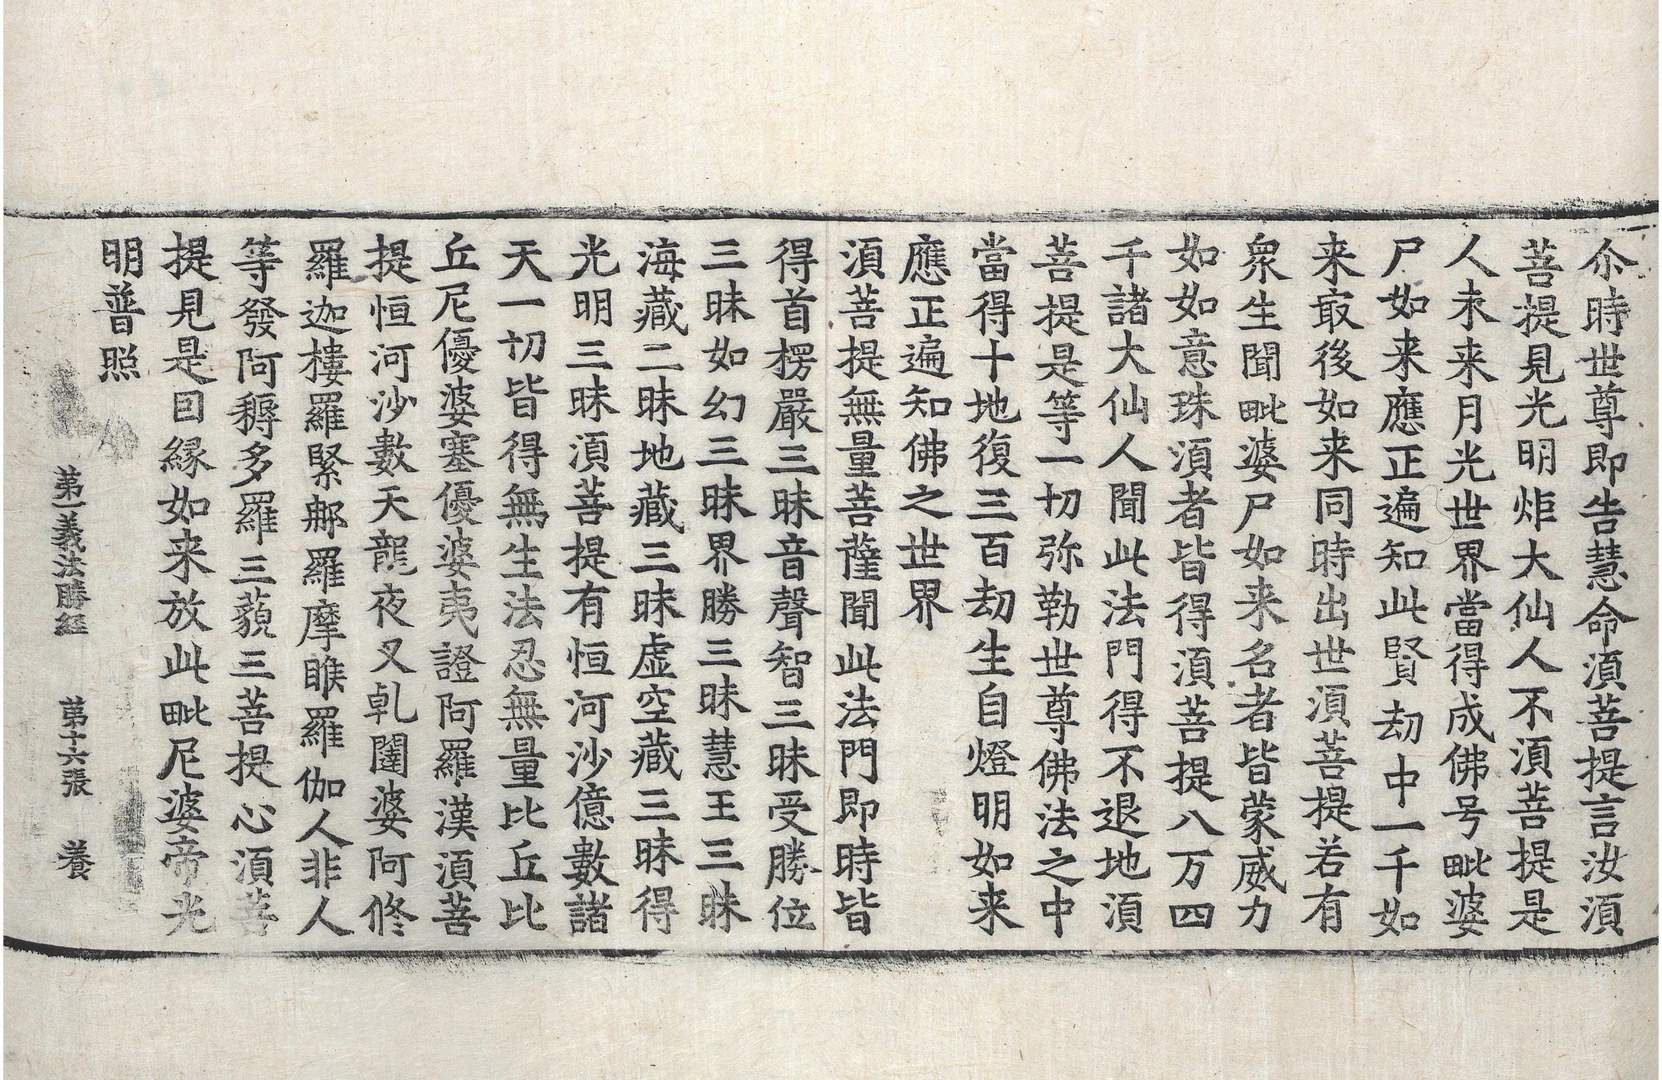 尒時世尊即告慧命湏菩提言汝湏
菩提見光明炬大仙人不湏菩提是
人未来月光世界當得成佛号毗婆
尸如来應正遍知此賢劫中一千如
来㝡後如来同時出世湏菩提若有
衆生聞毗婆尸如来名者皆蒙威力
如如意珠湏者皆得湏菩提八万四
千諸大仙人聞此法門得不退地湏
菩提是等一切弥勒世尊佛法之中
當得十地復三百劫生自燈明如来
應正遍知佛之世界
湏菩提無量菩薩聞此法門即時皆
得首楞嚴三昧音聲智三昧受勝位
三昧如幻三昧界勝三昧慧王三昧
海藏二昧地藏三昧虛空藏三昧得
光明三昧湏菩提有恒河沙億數諸
天一切皆得無生法忍無量比丘比
丘尼優婆塞優婆夷證阿羅漢湏菩
提恒河沙數天龍夜叉乹闥婆阿修
羅迦樓羅緊那羅摩睺羅伽人非人
等發阿耨多羅三藐三菩提心湏菩
提見是因縁如来放此毗尼婆帝光
明普照
第一義法勝經 第十六張 養